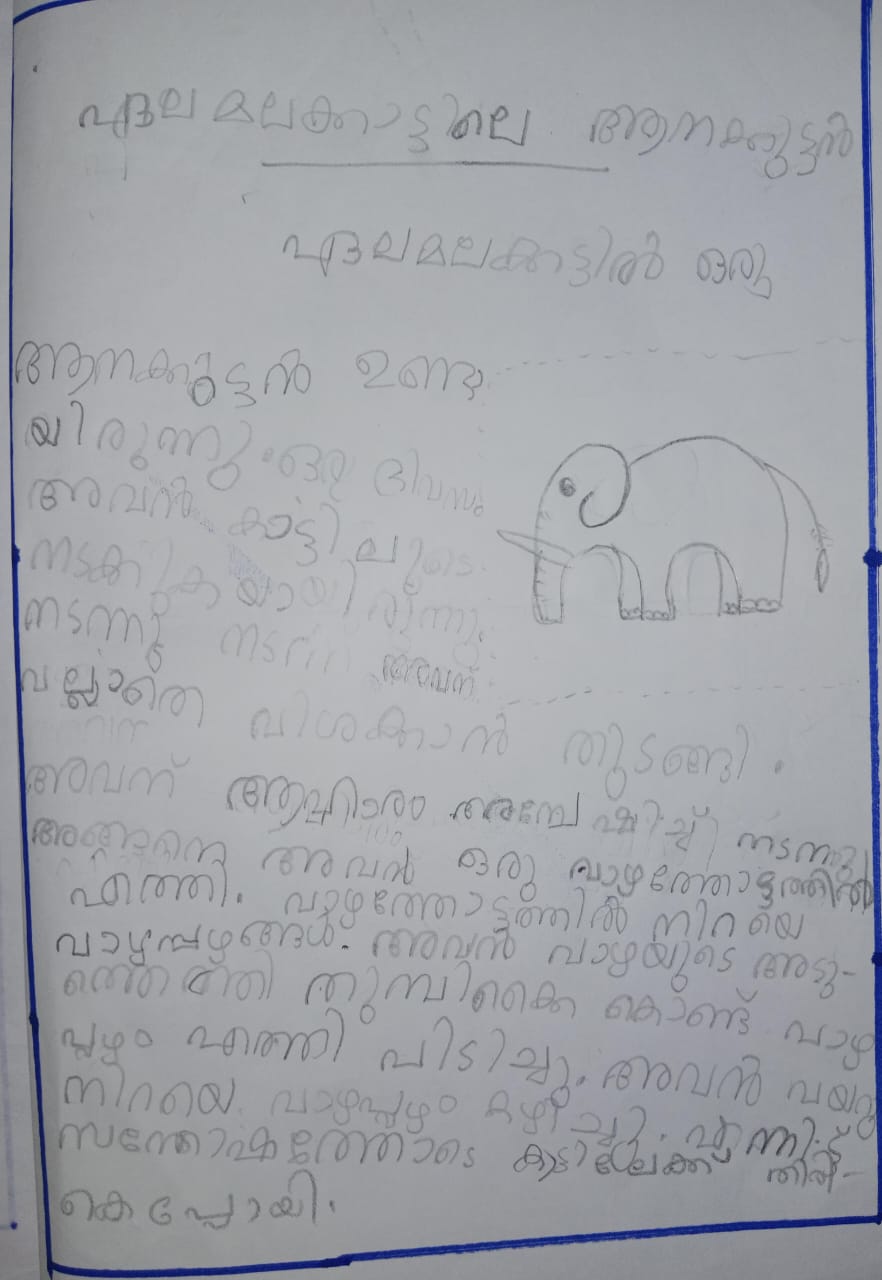 ഏലമലക്കാട്ടിലെ ആനക്കുട്ടൻ
ഏലമലക്കാട്ടിൽ ഒരു
ആനക്കുട്ടൻ ഉണ്ടാ
യിരുന്നു. ഒരു ദിവസം
അവൻ കാട്ടിലൂടെ
നടക്കുകയായിരുന്നു.
നടന്നു നടന്ന് അവന്
വല്ലാതെ വിശക്കാൻ തുടങ്ങി.
അവന് ആഹാരം അന്വേഷിച്ച് നടന്നു
അങ്ങനെ അവൻ ഒരു വാഴത്തോട്ടത്തിൽ
എത്തി. വാഴത്തോട്ടത്തിൽ നിറയെ
വാഴപ്പഴങ്ങൾ. അവൻ വാഴയുടെ അടു-
ത്തെത്തി തുമ്പികൈ കൊണ്ട് വാഴ
പ്പഴം എത്തി പിടിച്ചു. അവൻ വയറു
നിറയെ വാഴപ്പഴം കഴിച്ചു. എന്നിട്ട്
സന്തോഷത്തോടെ കാട്ടിലേക്ക് തിരി-
കെ പ്പോയി.